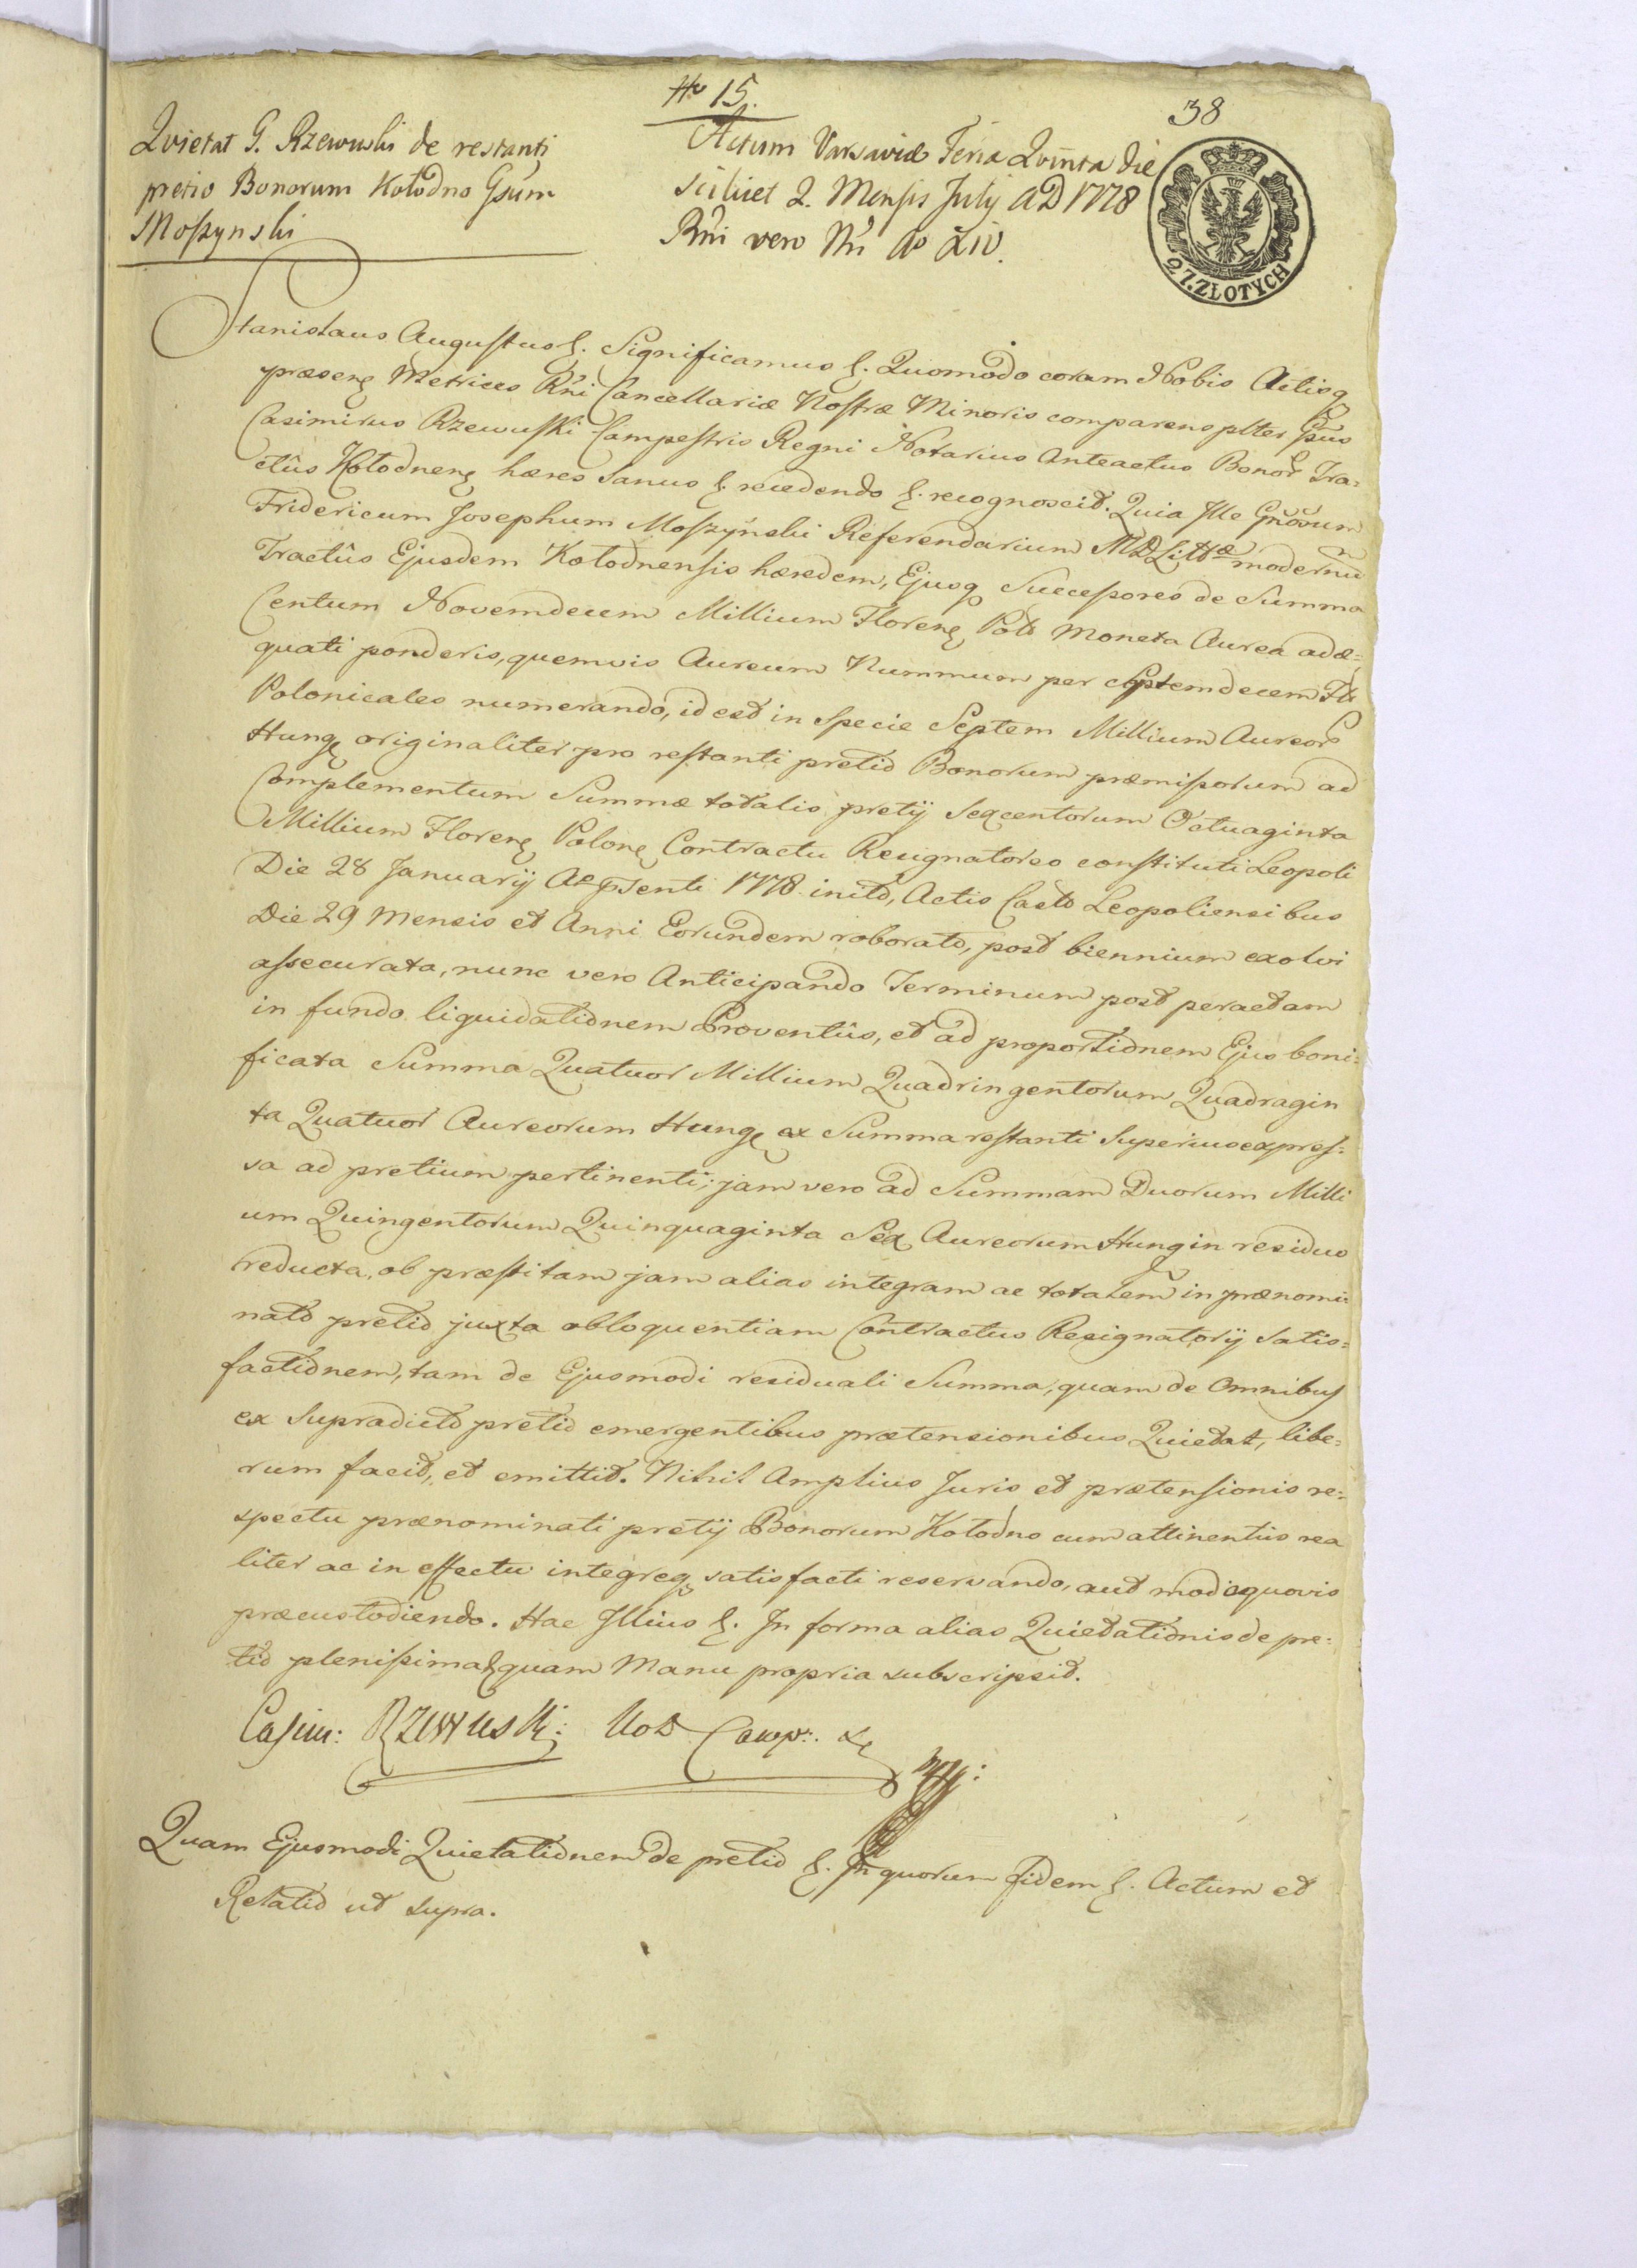 No 15.
38
Qvietat G. Rzewuski de restanti
pretio Bonorum Kołodno Gsum
Moszynski
Actum Varsaviæ Feria Qvinta die
scilicet 2. Mensis July AD 1778
Rni vero Nri Ao XIV.
2. Z. ZŁOTYCH
Stanislaus Augustus &. Significamus &. Quomodo coram Nobis Actisq
præsens Metrices Rni Cancellariæ Nostræ Minoris comparens plter Gsus
Casimirus Rzewuski Campestris Regni Notarius Anteactus Bonor Tra=
ctûs Kołodnens hæres Sanus &. recedendo &. recognoscit. Quia Ille Gnosum
Fridericum Josephum Moszyński Referendarium MDLittæ modernu
Tractûs Ejusdem Kołodnensis hæredem, Ejusq Successores de Summa
Centum Novemdecem Millium Floren Pol Moneta Aurea adæ=
quati ponderis, quemvis Aureum Nummum per Septemdecem Fl
Polonicales numerando, id est in specie Septem Millium Aureor
Hung originaliter pro restanti pretio Bonorum præmissorum ad
Complementum Summæ totalis pretij Sexcentorum Octuaginta
Millium Floren Polon Contractu Resignatoreo constituti Leopoli
Die 28 Januarij Ao psenti 1778 inito, Actis Castr Leopoliensibus
Die 29 Mensis et Anni Eorundem roborato, post biennium exolvi
assecurata, nunc vero Anticipando Terminum post peractam
in fundo liquidationem Proventûs, et ad proportionem Ejus boni=
ficata Summa Quatuor Millium Quadringentorum Quadragin
ta Quatuor Aureorum Hung ex Summa restanti Superius expres=
sa ad pretium pertinenti; jam vero ad Summam Duorum Milli
um Quingentorum Quinquaginta Sex Aureorum Hung in residuo
reducta, ob præstitam jam alias integram ac totalem in prænomi=
nato pretio juxta obloquentiam Contractus Resignatorij satis=
factionem, tam de Ejusmodi residuali Summa, quam de Omnibus
ex Supradicto pretio emergentibus prætensionibus Quietat, libe=
rum facit, et emittit. Nihil Amplius Juris et prætensionis re=
spectu prænominati pretij Bonorum Kołodno cum attinentiis rea
liter ac in effectu integreq satisfacti reservando, aut modoquovis
præcustodiendo. Hac Illius &. In forma alias Quietationis de pre=
tio plenissima quam Manu propria subscripsit.
Casim: Rzewuski: Not Camp: &
mp:
Quam Ejusmodi Quietationem de pretio &. In quorum fidem &. Actum et
Relatio ut supra.